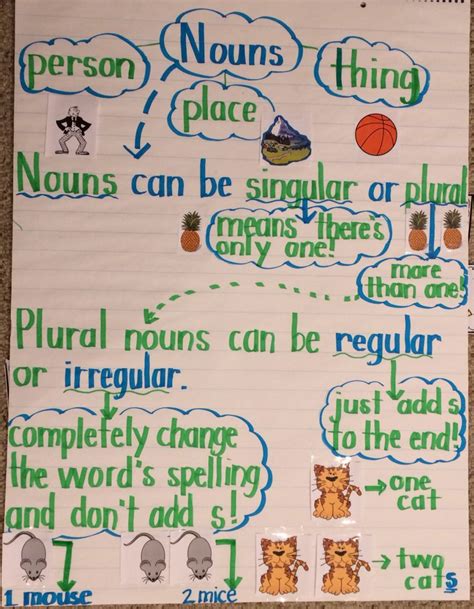 Nouns
person
thing
place
Nouns can be singular or plural
means there's
only one!
more
than one!
Plural nouns can be regular
or irregular.
just add s
to the end!
completely change
the word's spelling
and don't add s!
→ one
cat
→ two
cats
1 mouse
2 mice